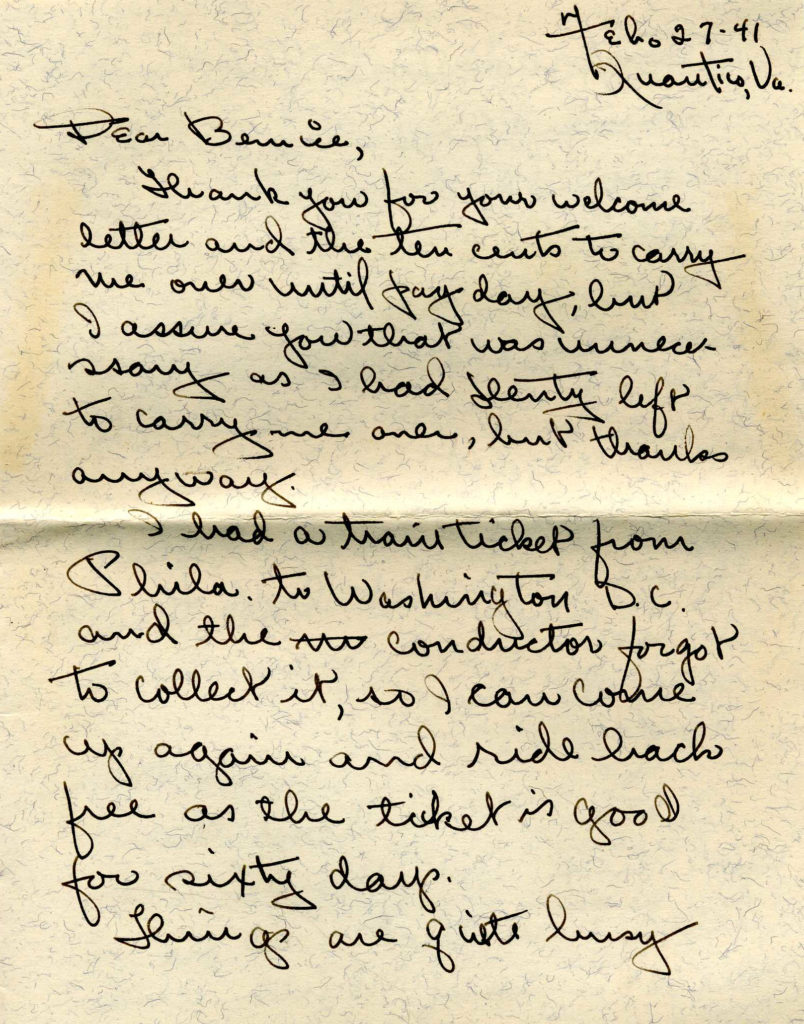 Feb. 27-41
Quantico, Va.
Dear Bernice,
Thank you for your welcome
letter and the ten cents to carry
me over until pay day, but
I assure you that was unnece-
ssary as I had plenty left
to carry me over, but thanks
anyway.
I had a train ticket from
Phila. to Washington D.C.
and the conductor forgot
to collect it, so I can come
up again and ride back
free as the ticket is good
for sixty days.
Things are quite busy